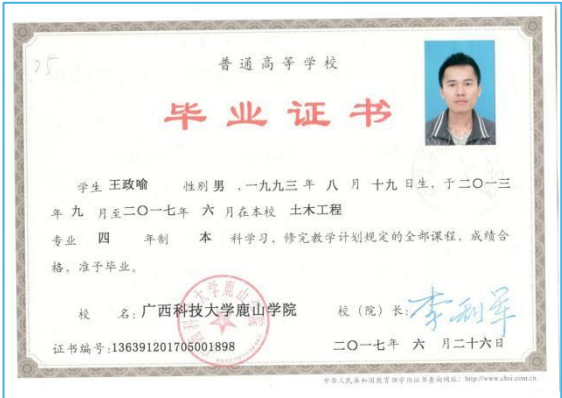 25
普通高等学校
毕业证书
学生 王政喻 性别 男 ，一九九三 年 八 月 十九 日生，于二〇一三
年 九 月至二〇一七年 六 月在本校 土木工程
专业 四 年制 本 科学习，修完教学计划规定的全部课程，成绩合
格，准予毕业。
校 名：广西科技大学鹿山学院 校（院）长：李利军
证书编号：136391201705001898 二〇一七年 六 月二十六日
中华人民共和国教育部学历证书查询网址：http://www.chsi.com.cn